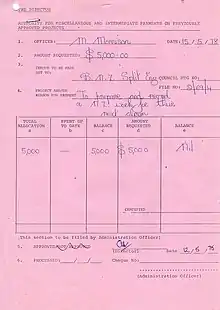 THE DIRECTOR
AUTHORITY FOR MISCELLANEOUS AND INTERMEDIATE PAYMENTS ON PREVIOUSLY
APPROVED PROJECTS
1. OFFICER: M. Morrison DATE: 15/5/78
2. AMOUNT REQUESTED: $ 5,000-00
3. CHEQUE TO BE MADE
OUT TO: Split Enz COUNCIL MTG NO
FILE NO
4. PROJECT AND/OR
REASON FOR PAYMENT: To promote and
a N.Z.! week for this
TOTAL DEDICATION SPENT UP TO DATE BALANCE AMOUNT REQUESTED BALANCE
5,000 — 5,000 $ 5,000 Nil
(This section to be filled by Administration Officer)
5. APPROVED (Director) Date 12/5/78
6. PROCESSED: / / Cheque No.
(Administration Officer)